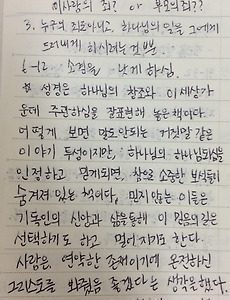 이사람의 죄? or 부모의죄??
3. 누구의 죄도아니고, 하나님의 일을 그에게
드러내게 하시려는 것뿐.
6-12 소경을 낫게 하심.
* 성경은 하나님의 창조와 이세상가
운데 주관하심을 잘표현해 놓은 책이다.
어떻게 보면 말도안되는 거짓말 같은
이야기 투성이지만, 하나님의 하나님되심을
인정하고 믿게되면, 참으로 소중한 보석들이
숨겨져 있는 책이다. 믿지않는 이들은
기독인의 신앙과 삶을통해 이 믿음의길은
선택하기도 하고 멀어지기도 한다.
사람은, 연약한 존재이기에 온전하신
그리스도를 봐줬음 좋겠다는 생각을했다.